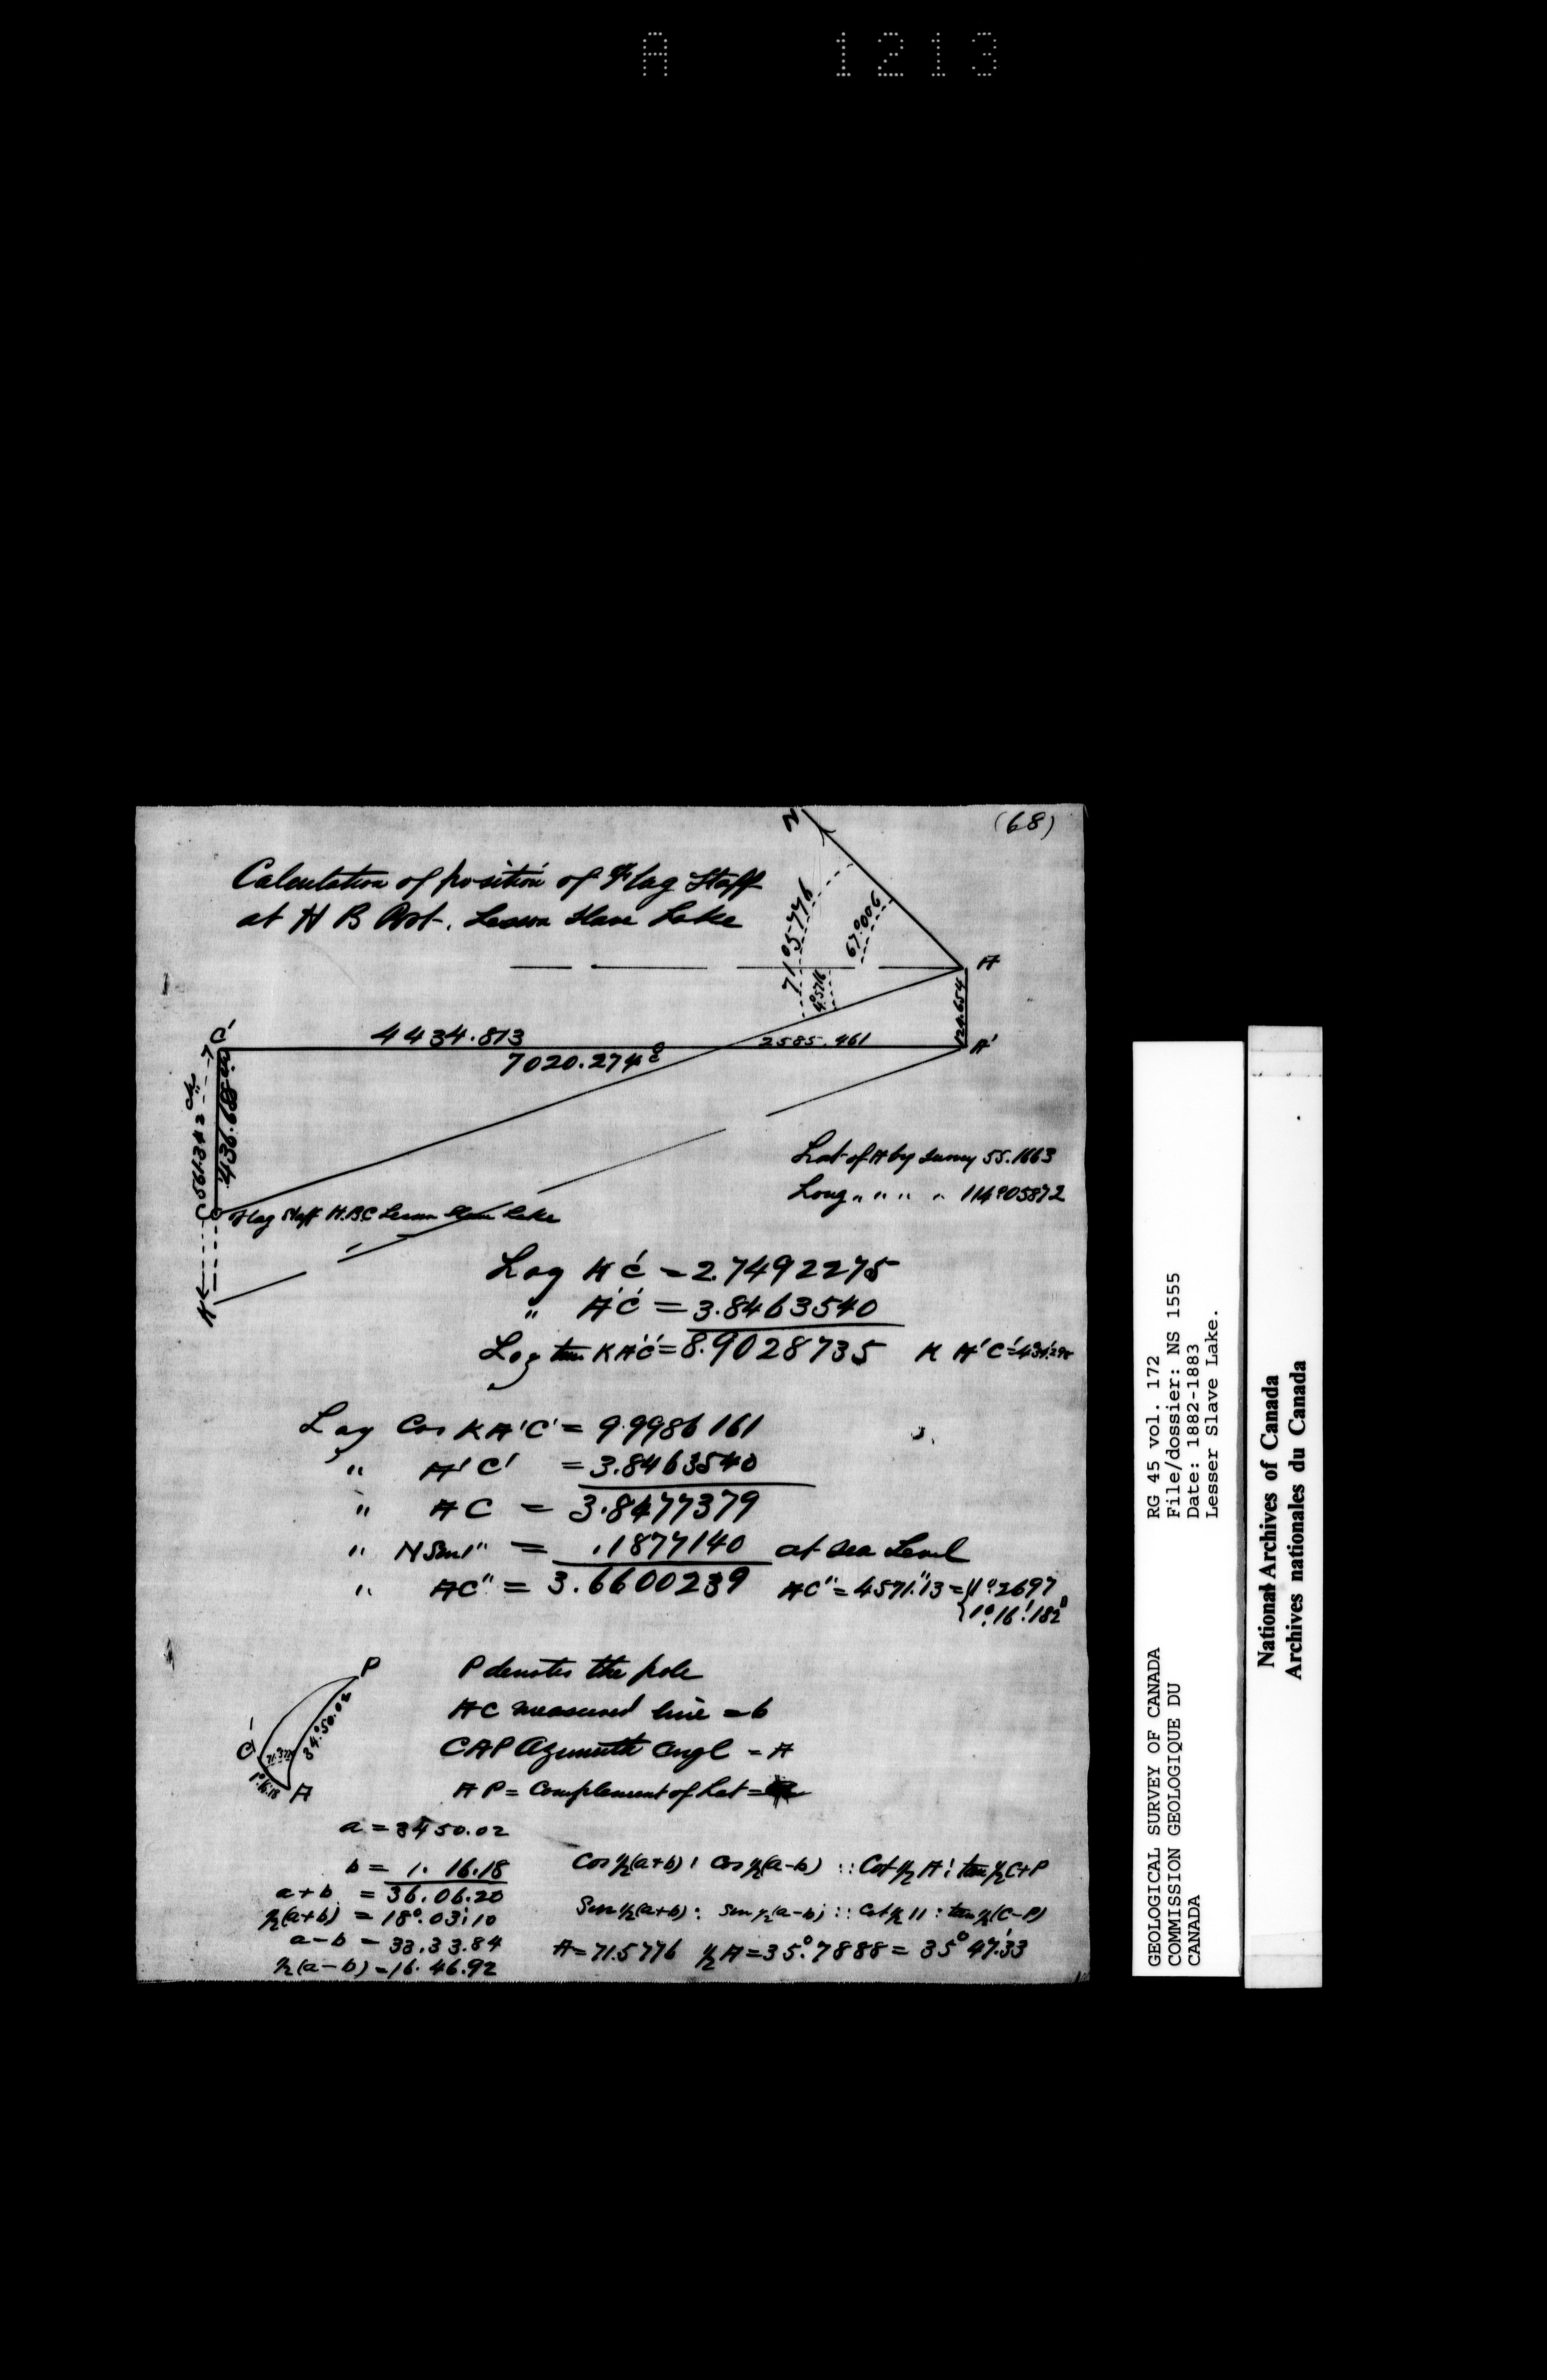 A 1213
(68)
Calculation of position of Flag Staff
at H B Post. Lesser Slave Lake
N
71°5776
67°006
4°5716
A
124.654
A'
C'
4434.813
2585.461
7020.274
561.342 ch
436.68
C
Flag Staff H.B.C Lesser Slave Lake
K
Lat of A by survey 55.1663
Long " " " " 114°05872
Log KC' = 2.7492275
" A'C' = 3.8463540
Log tan KA'C' = 8.9028735 K A'C' =
Log Cos KA'C' = 9.9986161
" A'C' = 3.8463540
" AC = 3.8477379
" N Sin 1" = .1877140 at sea Level
" AC" = 3.6600239 AC" = 4571".13 = { 1°2697
{ 1°.16'.182
P
C'
34°.50.02
1°.16.18
A
P denotes the pole
AC measured line = b
CAP Azimuth angl = A
AP = Complement of Lat =
a = 3450.02
b = 1. 16.18
a+b = 36.06.20
½(a+b) = 18°.03'.10
a-b = 33.33.84
½(a-b) = 16.46.92
Cos ½(a+b) : Cos ½(a-b) :: Cot ½ A : tan ½ C+P
Sin ½(a+b) : Sin ½(a-b) :: Cot ½ " : tan ½(C-P)
A = 71.5776 ½A = 35°.7888 = 35° 47'.33
GEOLOGICAL SURVEY OF CANADA
COMMISSION GEOLOGIQUE DU
CANADA
RG 45 vol. 172
File/dossier: NS 1555
Date: 1882-1883
Lesser Slave Lake.
National Archives of Canada
Archives nationales du Canada